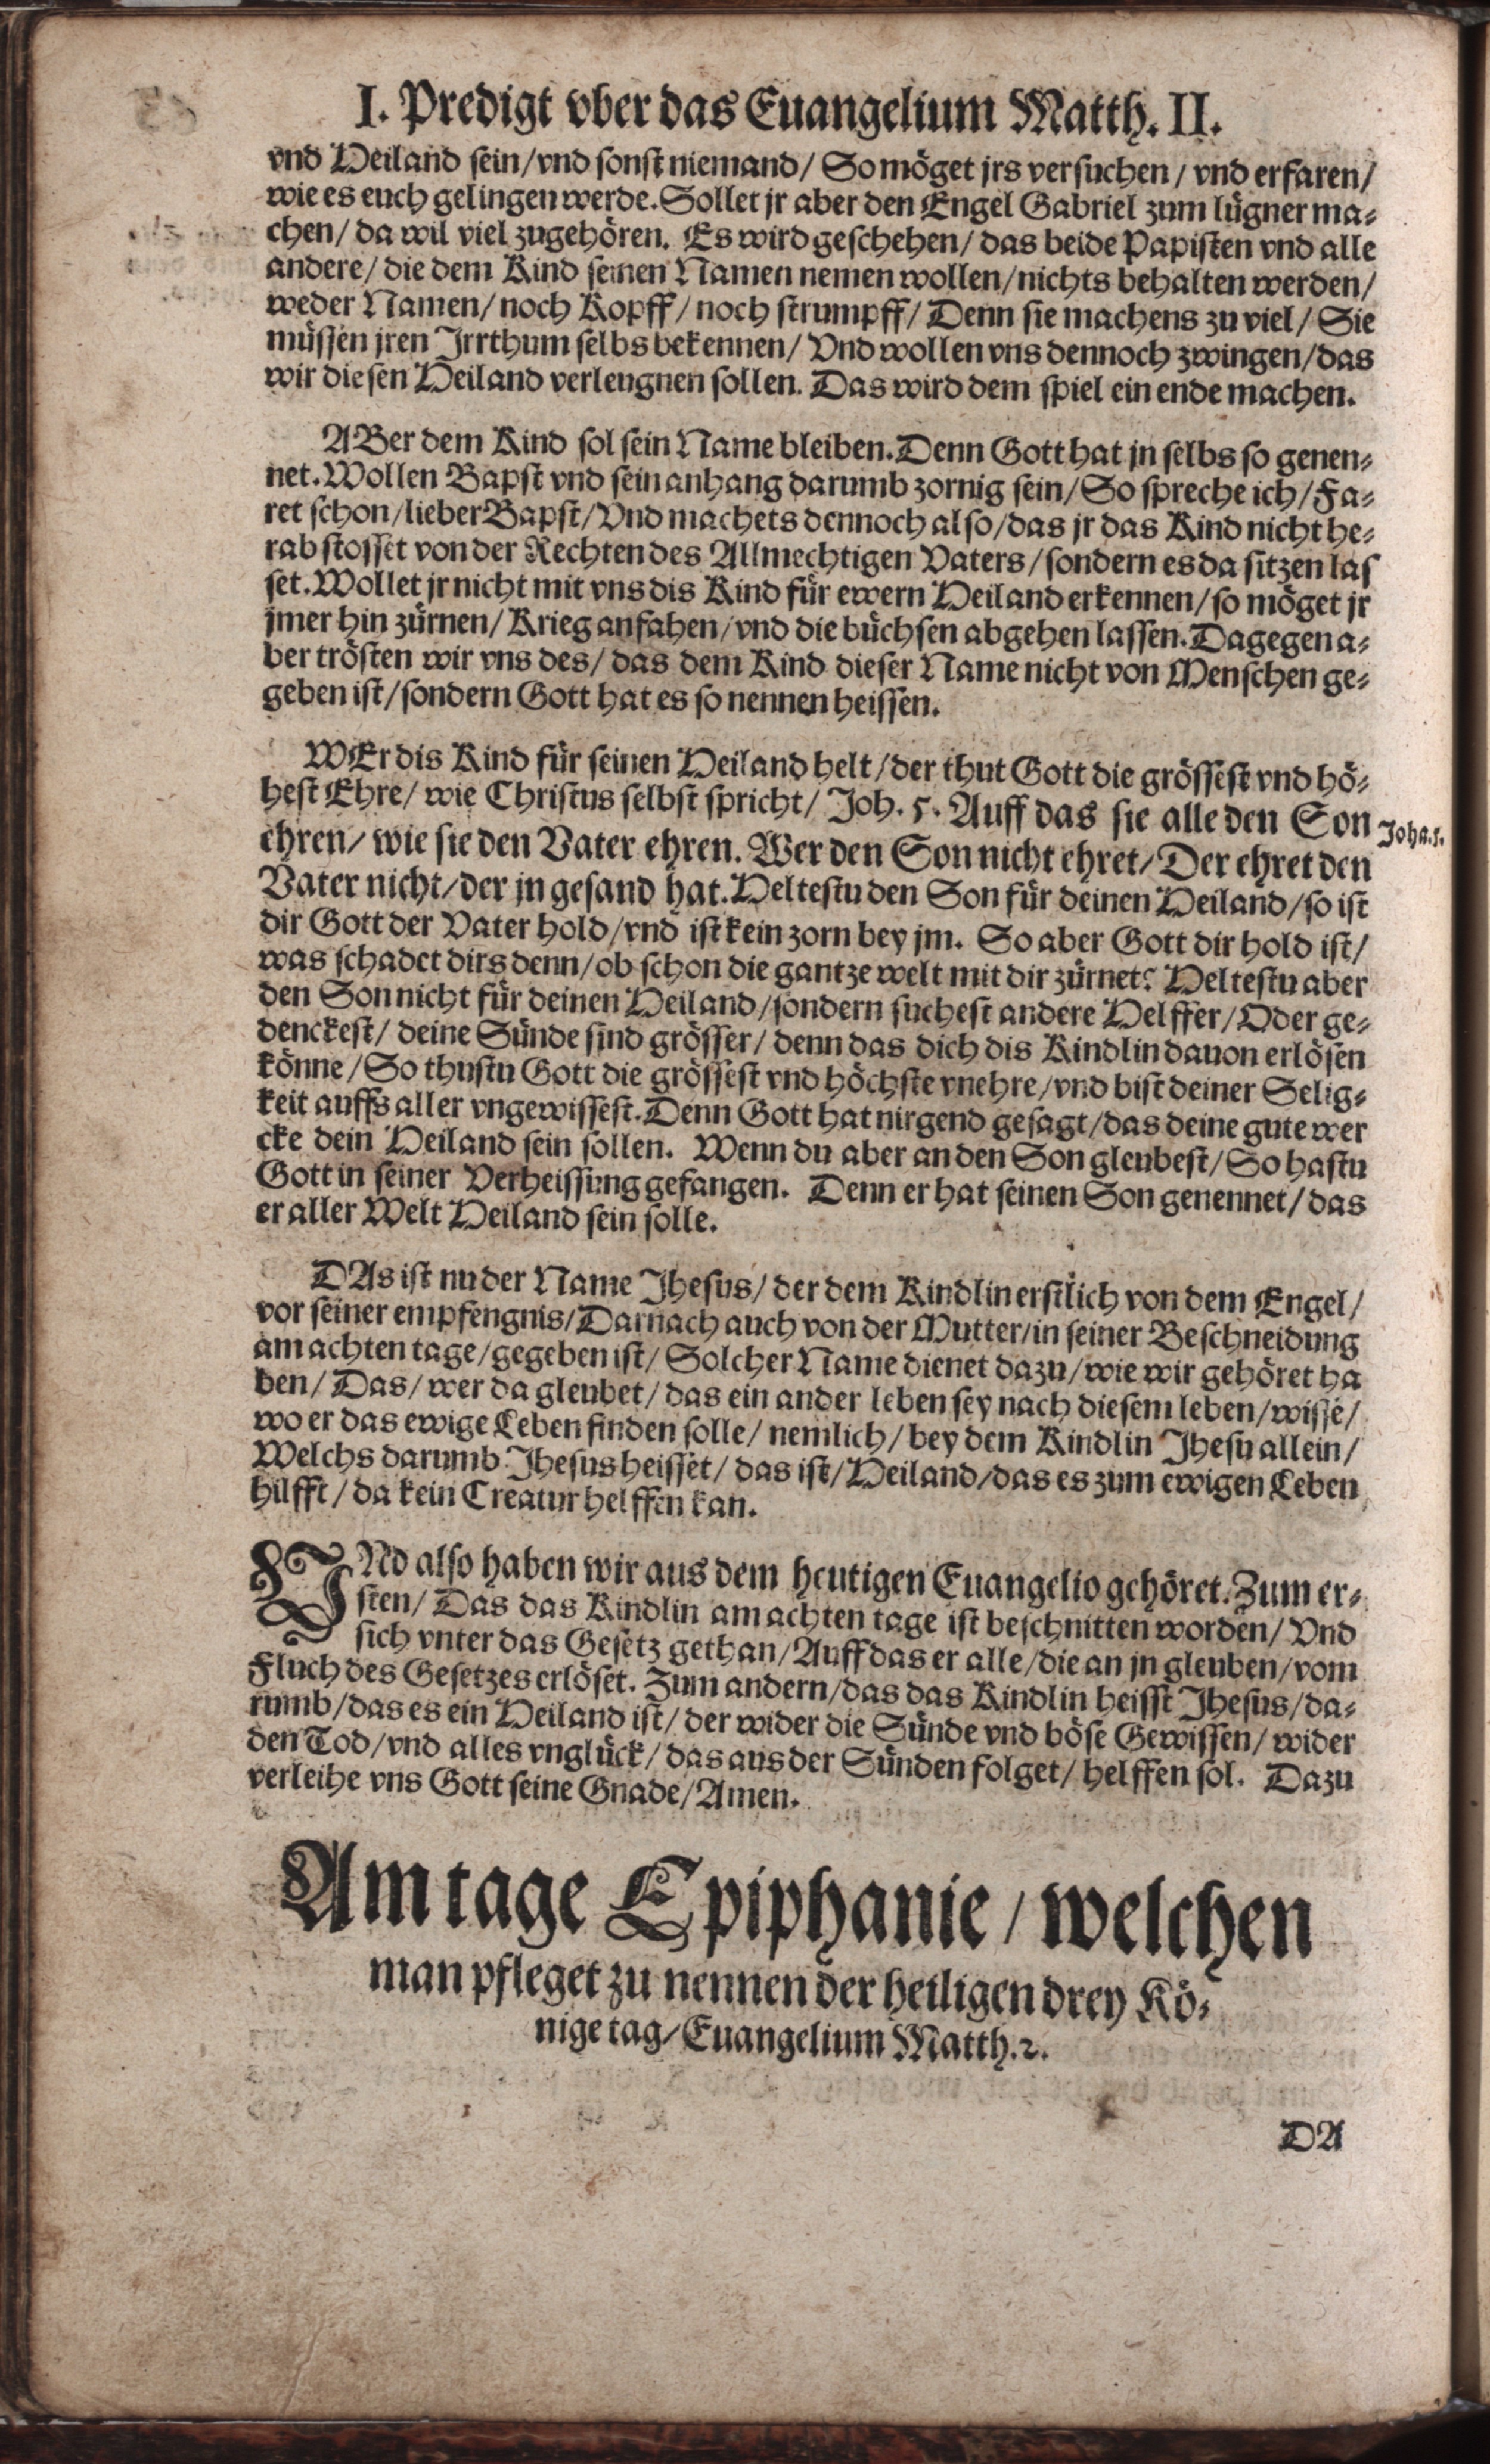 I. Predigt vber das Euangelium Matth. II.
vnd Heiland sein/ vnd sonst niemand/ So möget jrs versuchen/ vnd erfaren/
wie es euch gelingen werde. Sollet jr aber den Engel Gabriel zum lügner ma⸗
chen/ da wil viel zugehören. Es wird geschehen/ das beide Papisten vnd alle
andere/ die dem Kind seinen Namen nemen wollen/ nichts behalten werden/
weder Namen/ noch Kopff/ noch strumpff/ Denn sie machens zu viel/ Sie
müssen jren Irrthum selbs bekennen/ Vnd wollen vns dennoch zwingen/ das
wir diesen Heiland verleugnen sollen. Das wird dem spiel ein ende machen.
ABer dem Kind sol sein Name bleiben. Denn Gott hat jn selbs so genen⸗
net. Wollen Bapst vnd sein anhang darumb zornig sein/ So spreche ich/ Fa⸗
ret schon/ lieber Bapst/ Vnd machets dennoch also/ das jr das Kind nicht he⸗
rab stosset von der Rechten des Allmechtigen Vaters/ sondern es da sitzen las
set. Wollet jr nicht mit vns dis Kind für ewern Heiland erkennen/ so möget jr
jmer hin zürnen/ Krieg anfahen/ vnd die büchsen abgehen lassen. Dagegen a⸗
ber trösten wir vns des/ das dem Kind dieser Name nicht von Menschen ge⸗
geben ist/ sondern Gott hat es so nennen heissen.
WEr dis Kind für seinen Heiland helt/ der thut Gott die grössest vnd hö⸗
hest Ehre/ wie Christus selbst spricht/ Joh. 5. Auff das sie alle den Son
Joha.5.
ehren/ wie sie den Vater ehren. Wer den Son nicht ehret/ Der ehret den
Vater nicht/ der jn gesand hat. Heltestu den Son für deinen Heiland/ so ist
dir Gott der Vater hold/ vnd ist kein zorn bey jm. So aber Gott dir hold ist/
was schadet dirs denn/ ob schon die gantze welt mit dir zürnet? Heltestu aber
den Son nicht für deinen Heiland/ sondern suchest andere Helffer/ Oder ge⸗
denckest/ deine Sünde sind grösser/ denn das dich dis Kindlin dauon erlösen
könne/ So thustu Gott die grössest vnd höchste vnehre/ vnd bist deiner Selig⸗
keit auffs aller vngewissest. Denn Gott hat nirgend gesagt/ das deine gute wer
cke dein Heiland sein sollen. Wenn du aber an den Son gleubest/ So hastu
Gott in seiner Verheissung gefangen. Denn er hat seinen Son genennet/ das
er aller Welt Heiland sein solle.
DAs ist nu der Name Jhesus/ der dem Kindlin erstlich von dem Engel/
vor seiner empfengnis/ Darnach auch von der Mutter/ in seiner Beschneidung
am achten tage/ gegeben ist/ Solcher Name dienet dazu/ wie wir gehöret ha
ben/ Das/ wer da gleubet/ das ein ander leben sey nach diesem leben/ wisse/
wo er das ewige Leben finden solle/ nemlich/ bey dem Kindlin Jhesu allein/
Welchs darumb Jhesus heisset/ das ist/ Heiland/ das es zum ewigen Leben
hilfft/ da kein Creatur helffen kan.
VNd also haben wir aus dem heutigen Euangelio gehöret. Zum er⸗
sten/ Das das Kindlin am achten tage ist beschnitten worden/ Vnd
sich vnter das Gesetz gethan/ Auff das er alle/ die an jn gleuben/ vom
Fluch des Gesetzes erlöset. Zum andern/ das das Kindlin heisst Jhesus/ da⸗
rumb/ das es ein Heiland ist/ der wider die Sünde vnd böse Gewissen/ wider
den Tod/ vnd alles vnglück/ das aus der Sünden folget/ helffen sol. Dazu
verleihe vns Gott seine Gnade/ Amen.
Am tage Epiphanie/ welchen
man pfleget zu nennen der heiligen drey Kö⸗
nige tag/ Euangelium Matth. 2.
DA